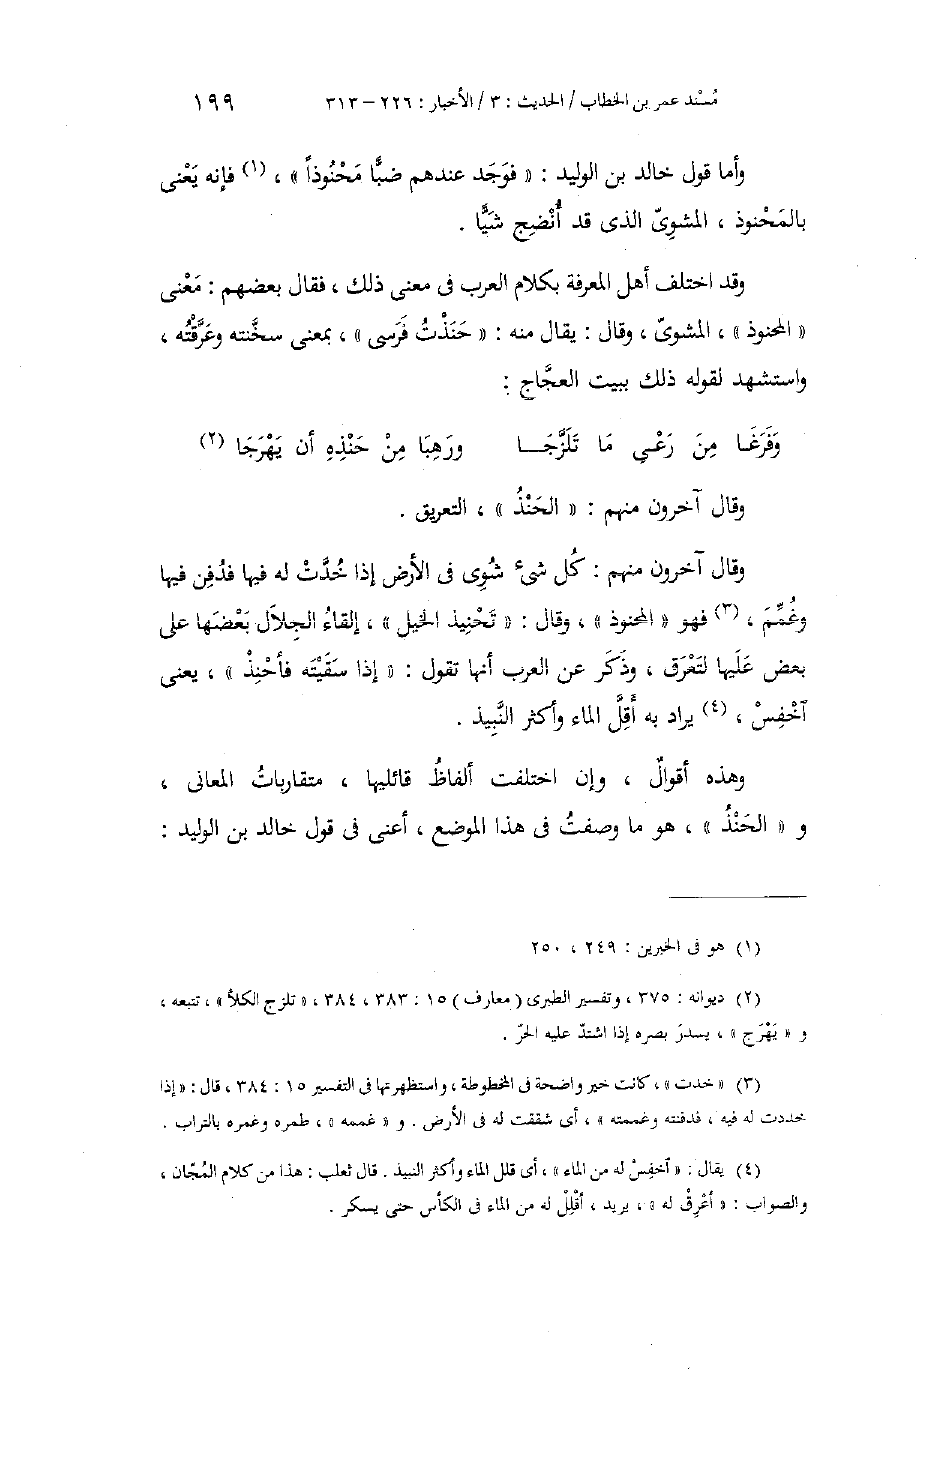 مُسْند عمر بن الخطاب / الحديث : ٣ / الأخبار : ٢٢٦ – ٣١٣ ١٩٩
وأما قول خالد بن الوليد : « فوَجَد عندهم ضبًّا مَحْنُوذاً » ، (١) فإنه يَعْنى
بالمَحْنوذ ، المشوِىّ الذى قد أُنْضِج شَيًّا .
وقد اختلف أهل المعرفة بكلام العرب فى معنى ذلك ، فقال بعضهم : مَعْنى
« المحنوذ » ، المشوىّ ، وقال : يقال منه : « حَنَذْتُ فَرَسى » ، بمعنى سخَّنته وعَرَّقْتُه ،
واستشهد لقوله ذلك ببيت العجَّاج :
وَفَرَغَـا مِنَ رَعْـىِ مَا تَلَزَّجَــا ورَهِبَا مِنْ حَنْذِهِ أن يَهْرَجَا (٢)
وقال آخرون منهم : « الحَنْذُ » ، التعريق .
وقال آخرون منهم : كُل شىءٍ شُوِى فى الأرض إذا خُدَّتْ له فيها فدُفِن فيها
وغُمِّمَ ، (٣) فهو « المحنوذ » ، وقال : « تَحْنِيذ الخيل » ، إلقاءُ الجِلاَل بَعْضَها على
بعض عَلَيها لتَعْرَق ، وذَكَر عن العرب أنها تقول : « إذا سَقَيْتَه فأحْنِذْ » ، يعنى
آخْفِسْ ، (٤) يراد به أَقِلَّ الماء وأكثر النَّبِيذ .
وهذه أقوالٌ ، وإن اختلفت ألفاظُ قائليها ، متقارباتُ المعانى ،
و « الحَنْذُ » ، هو ما وصفتُ فى هذا الموضع ، أعنى فى قول خالد بن الوليد :
(١) هو فى الخبرين : ٢٤٩ ، ٢٥٠
(٢) ديوانه : ٣٧٥ ، وتفسير الطبرى ( معارف ) ١٥ : ٣٨٣ ، ٣٨٤ ، « تلزج الكلأ » ، تتبعه ،
و « يَهْرَج » ، يسدرَ بصره إذا اشتدّ عليه الحرّ .
(٣) « خدت » ، كانت خير واضحة فى المخطوطة ، واستظهرتها فى التفسير ١٥ : ٣٨٤ ، قال : « إذا
خددت له فيه ، فدفنته وغممته » ، أى شققت له فى الأرض . و « غممه » ، طمره وغمره بالتراب .
(٤) يقال : « آخفِسْ له من الماء » ، أى قلل الماء وأكثر النبيذ . قال ثعلب : هذا من كلام المُجّان ،
والصواب : « أعْرِقْ له » ، يريد ، أقْلِلْ له من الماء فى الكأس حتى يسكر .